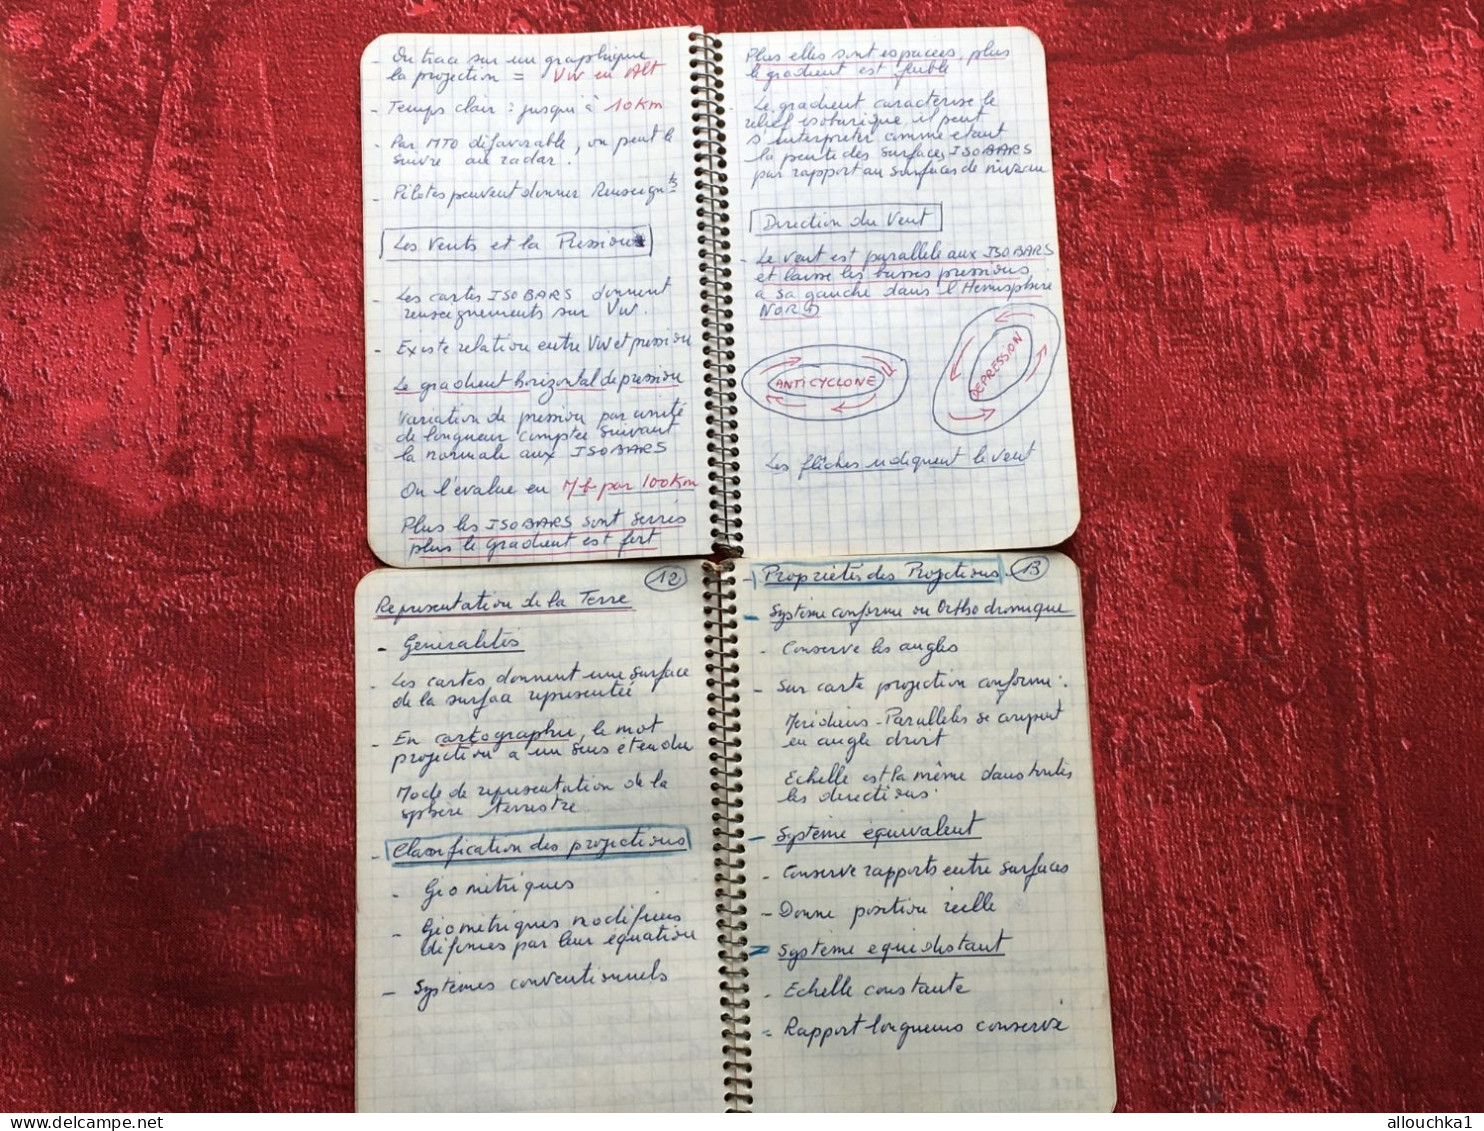 - On trace sur un graphique
la projection = VW en Alt
- Temps clair : jusqu'à 10 Km
- Par MTO défavorable, on peut le
suivre au radar.
- Pilotes peuvent donner Renseignts
Les Vents et la Pression
- Les cartes ISOBARS donnent
renseignements sur VW.
- Existe relation entre VW et pression
Le gradient horizontal de pression
Variation de pression par unité
de longueur comptée suivant
la normale aux ISOBARS
On l'évalue en Mb par 100 Km
Plus les ISOBARS sont serrés
plus le Gradient est fort
Plus elles sont espacées, plus
le gradient est faible
- Le gradient caractérise le
relief isobarique, il peut
s'interpréter comme étant
la pente des surfaces ISOBARS
par rapport au surfaces de niveau
Direction du Vent
- Le vent est parallèle aux ISOBARS
et laisse les basses pressions
à sa gauche dans l'Hémisphère
NORD
ANTICYCLONE
DEPRESSION
Les flèches indiquent le vent
12
Représentation de la Terre
- Généralités
- Les cartes donnent une surface
de la surface représentée
- En cartographie, le mot
projection a un sens étendu
Mode de représentation de la
sphère terrestre
- Classification des projections
- Géométriques
- Géométriques modifiées
définies par leur équation
- Systèmes conventionnels
- Propriétés des Projections 13
- Système conforme ou Orthodromique
- Conserve les angles
- Sur carte projection conforme :
Méridiens - Parallèles se coupent
en angle droit
Echelle est la même dans toutes
les directions.
- Système équivalent
- Conserve rapports entre surfaces
- Donne position réelle
- Système equidistant
- Echelle constante
- Rapport longueurs conservé
allouchka1